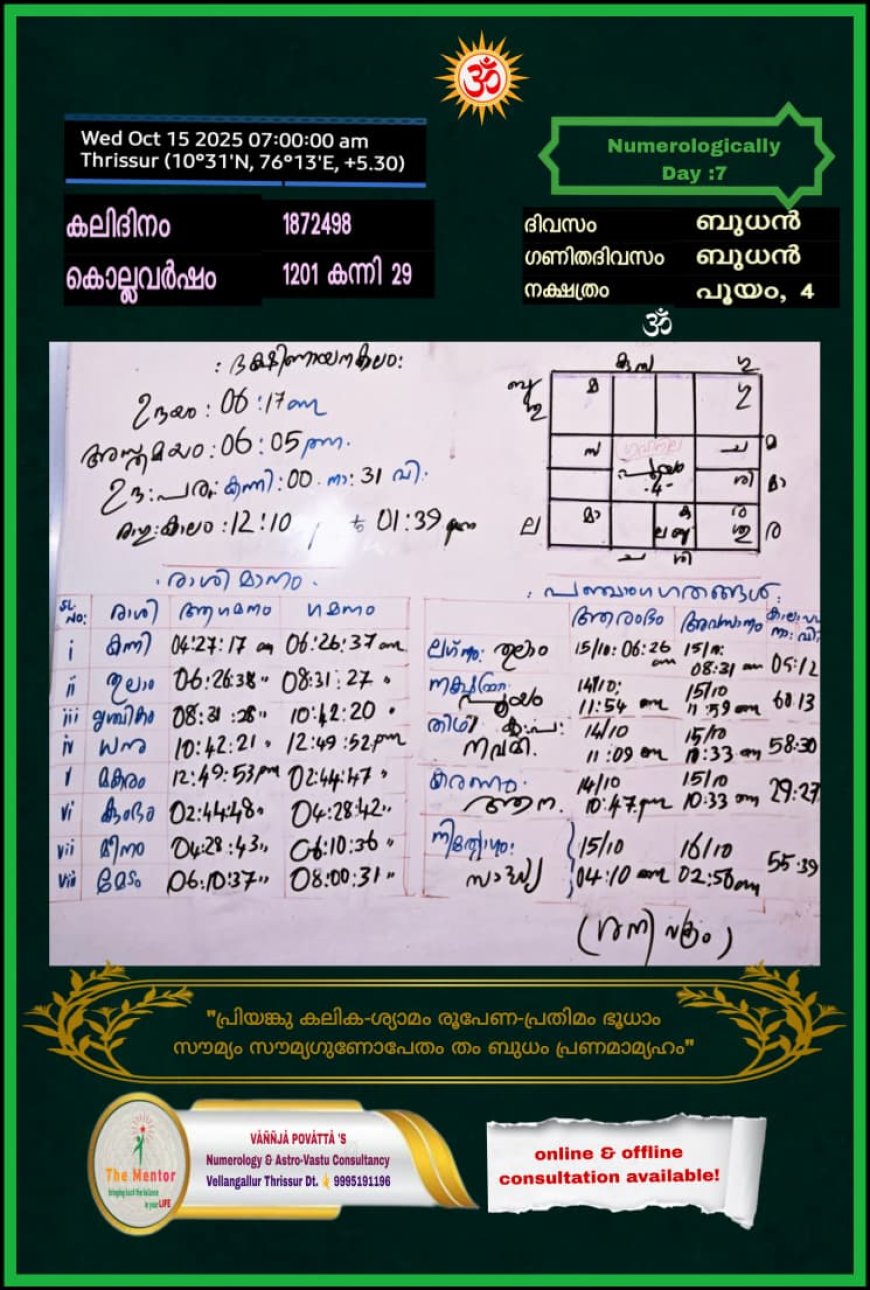 ॐ
Wed Oct 15 2025 07:00:00 am
Thrissur (10°31'N, 76°13'E, +5.30)
Numerologically
Day :7
കലിദിനം 1872498
കൊല്ലവർഷം 1201 കന്നി 29
ദിവസം ബുധൻ
ഗണിതദിവസം ബുധൻ
നക്ഷത്രം പൂയം, 4
ॐ
: ദക്ഷിണായനകാലം:
ഉദയം: 06:17 am
അസ്തമയം: 06:05 pm.
ഉദ:പരം: കന്നി:00 നാ: 31 വി.
രാഹു:കാലം:12:10 to 01:39 pm
കു
ഗു
മ
ഗു
സ
ച
മ
പൂയം
-4-
ശി
മാ
ല
മാ
ര
ര
ച
ശി
. രാശി മാനം .
SL No: രാശി ആഗമനം ഗമനം
i കന്നി 04:27:17 am 06:26:37 am
ii തുലാം 06:26:38 " 08:31:27 "
iii വൃശ്ചികം 08:31:28 " 10:42:20 "
iv ധനു 10:42:21 " 12:49:52 pm
v മകരം 12:49:53 pm 02:44:47 "
vi കുംഭം 02:44:48 " 04:28:42 "
vii മീനം 04:28:43 " 06:10:36 "
viii മേടം 06:10:37 " 08:00:31 "
: പഞ്ചാംഗഗതങ്ങൾ:
ആരംഭം അവസാനം
നാ: വി
ലഗ്നം: തുലാം 15/10: 06:26 am 15/10: 08:31 am 05:12
നക്ഷത്രം: പൂയം 14/10: 11:54 am 15/10 11:59 am 60:13
തിഥി: കൃ:പ: നവമി. 14/10 11:09 am 15/10 10:33 am 58:30
കരണം: ആന. 14/10 10:47 pm 15/10 10:33 am 29:27
നിത്യയോഗം: സാദ്ധ്യ 15/10 04:10 am 16/10 02:56 am 55:39
(ശനി വക്രം)
"പ്രിയങ്കു കലിക-ശ്യാമം രൂപേണ-പ്രതിമം ഭൂധാം
സൗമ്യം സൗമ്യഗുണോപേതം തം ബുധം പ്രണമാമ്യഹം"
The Mentor
bringing back the balance
in your LIFE
VÁÑÑJÀ POVÁTTÁ 'S
Numerology & Astro-Vastu Consultancy
Vellangallur Thrissur Dt. 9995191196
online & offline
consultation available!